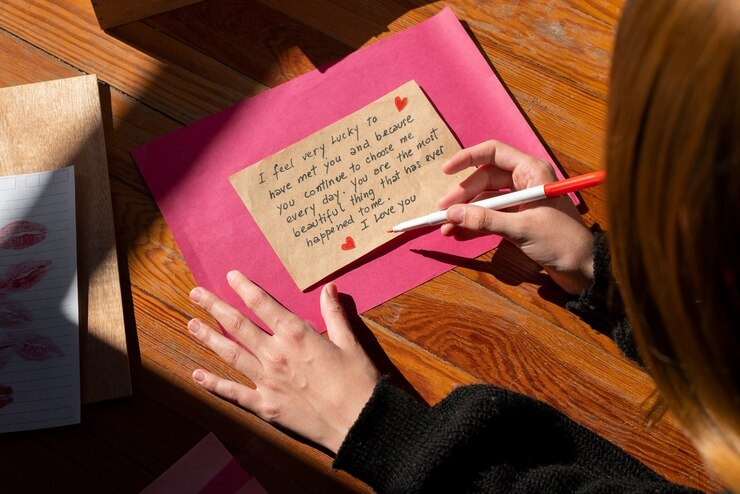 I feel very Lucky to
have met you and because
you continue to choose me
every day. you are the most
beautiful thing that has ever
happened to me.
I love you